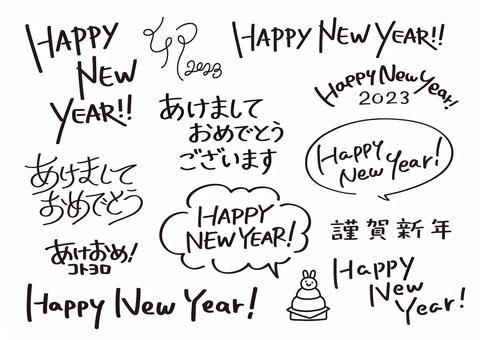 HAPPY
NEW
YEAR!!
卯
2023
HAPPY NEW YEAR!!
Happy New Year!
2023
あけまして
おめでとう
ございます
Happy
New Year!
あけまして
おめでとう
HAPPY
NEW YEAR!
謹賀新年
あけおめ!
コトヨロ
Happy New Year!
Happy
New
Year!